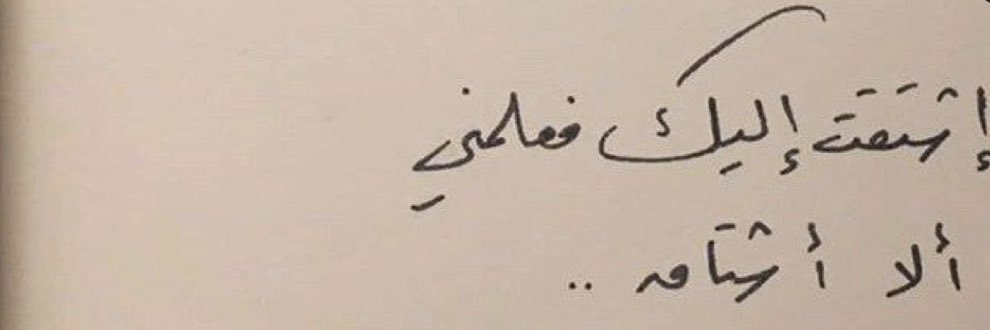 إشتقت إليك فعلمني
ألا أشتاق ..